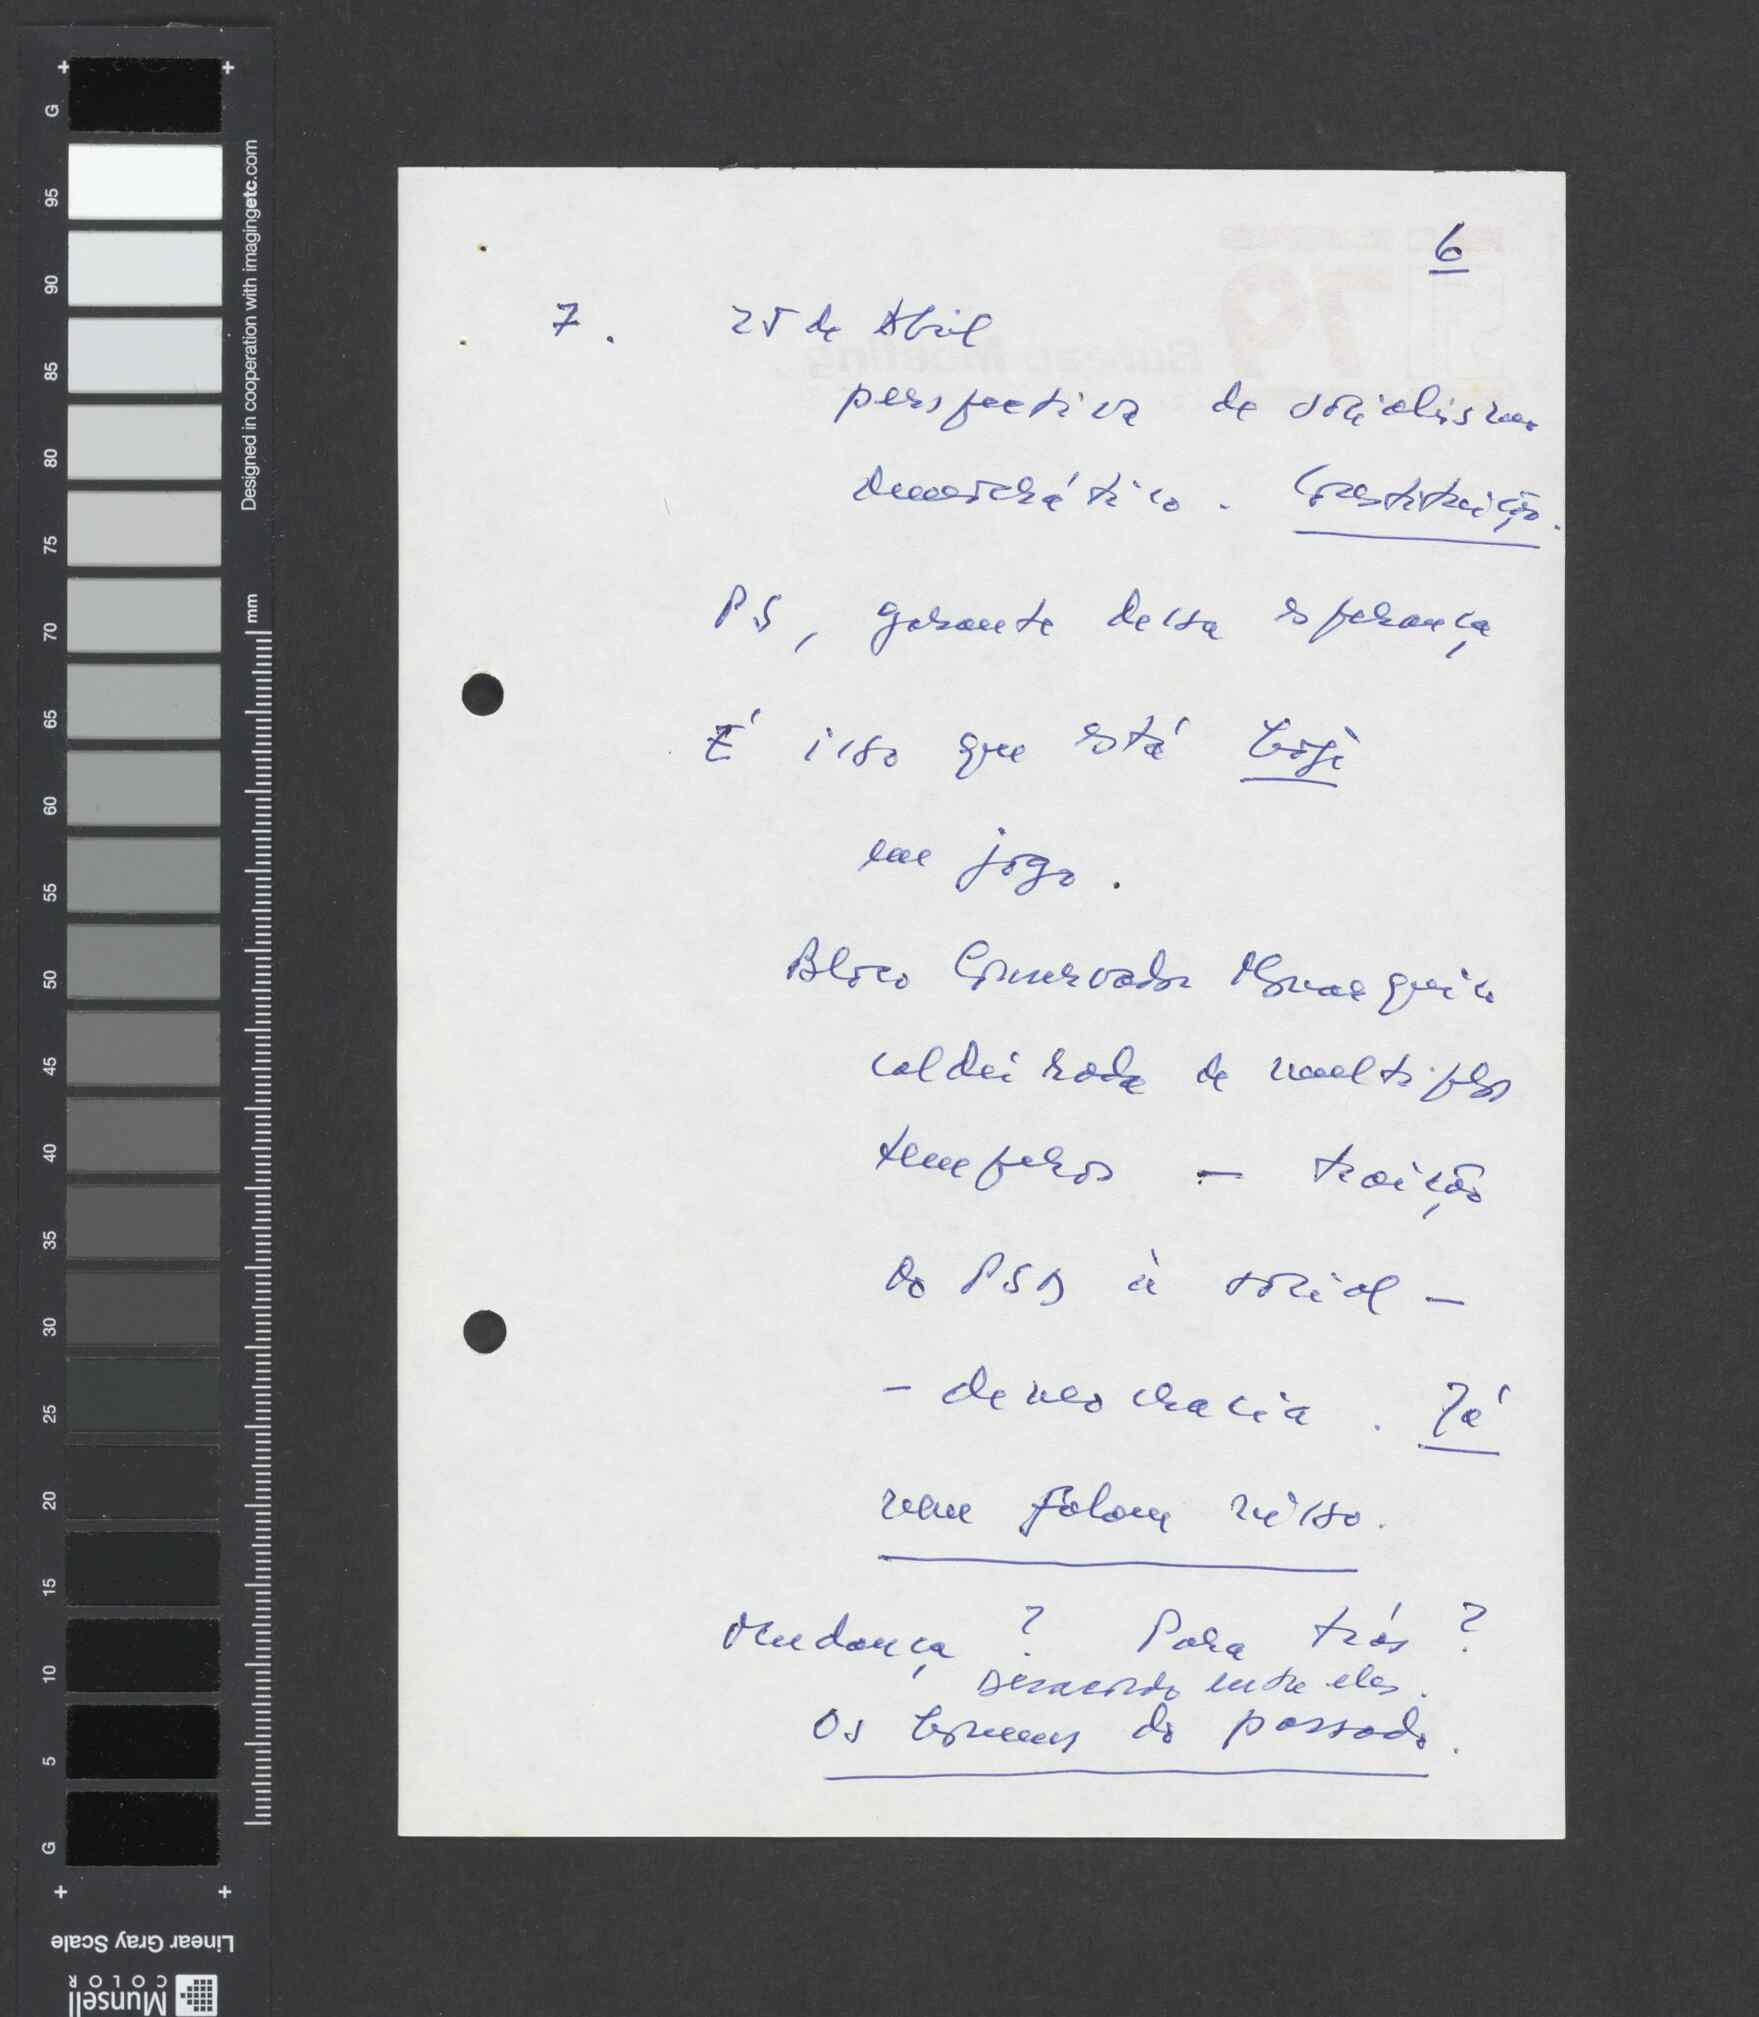 6
7. 25 de Abril
perspectiva de socialismo
democrático. Constituição.
PS, garante dessa esperança
É isso que está hoje
em jogo.
Bloco Conservador Monarquico
caldeirada de multiplos
temperos — traição
do PSD à social-
- democracia. Já
nem falam nisso.
Mudança? Para trás?
Desacordo entre eles.
Os homens do passado.
Bureau Meeting
79
G
95
90
85
80
75
70
65
60
55
50
45
40
35
30
25
20
15
10
5
G
Designed in cooperation with imagingetc.com
mm
Linear Gray Scale
Munsell
COLOR